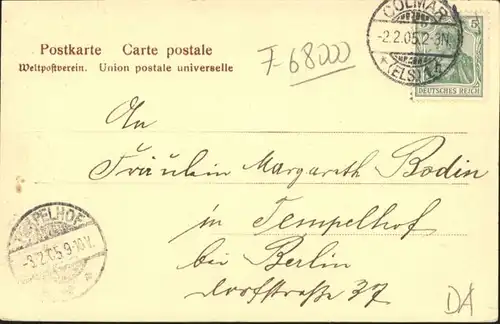 COLMAR
-2.2.05.2-3N.
(ELS) 1
5
DEUTSCHES REICH
Postkarte Carte postale
Weltpostverein. Union postale universelle
F-68000
An
Fräulein Margareth Bodin
in Tempelhof
bei Berlin
Dorfstraße 37
TEMPELHOF
-3.2.05.9-10V.
DA